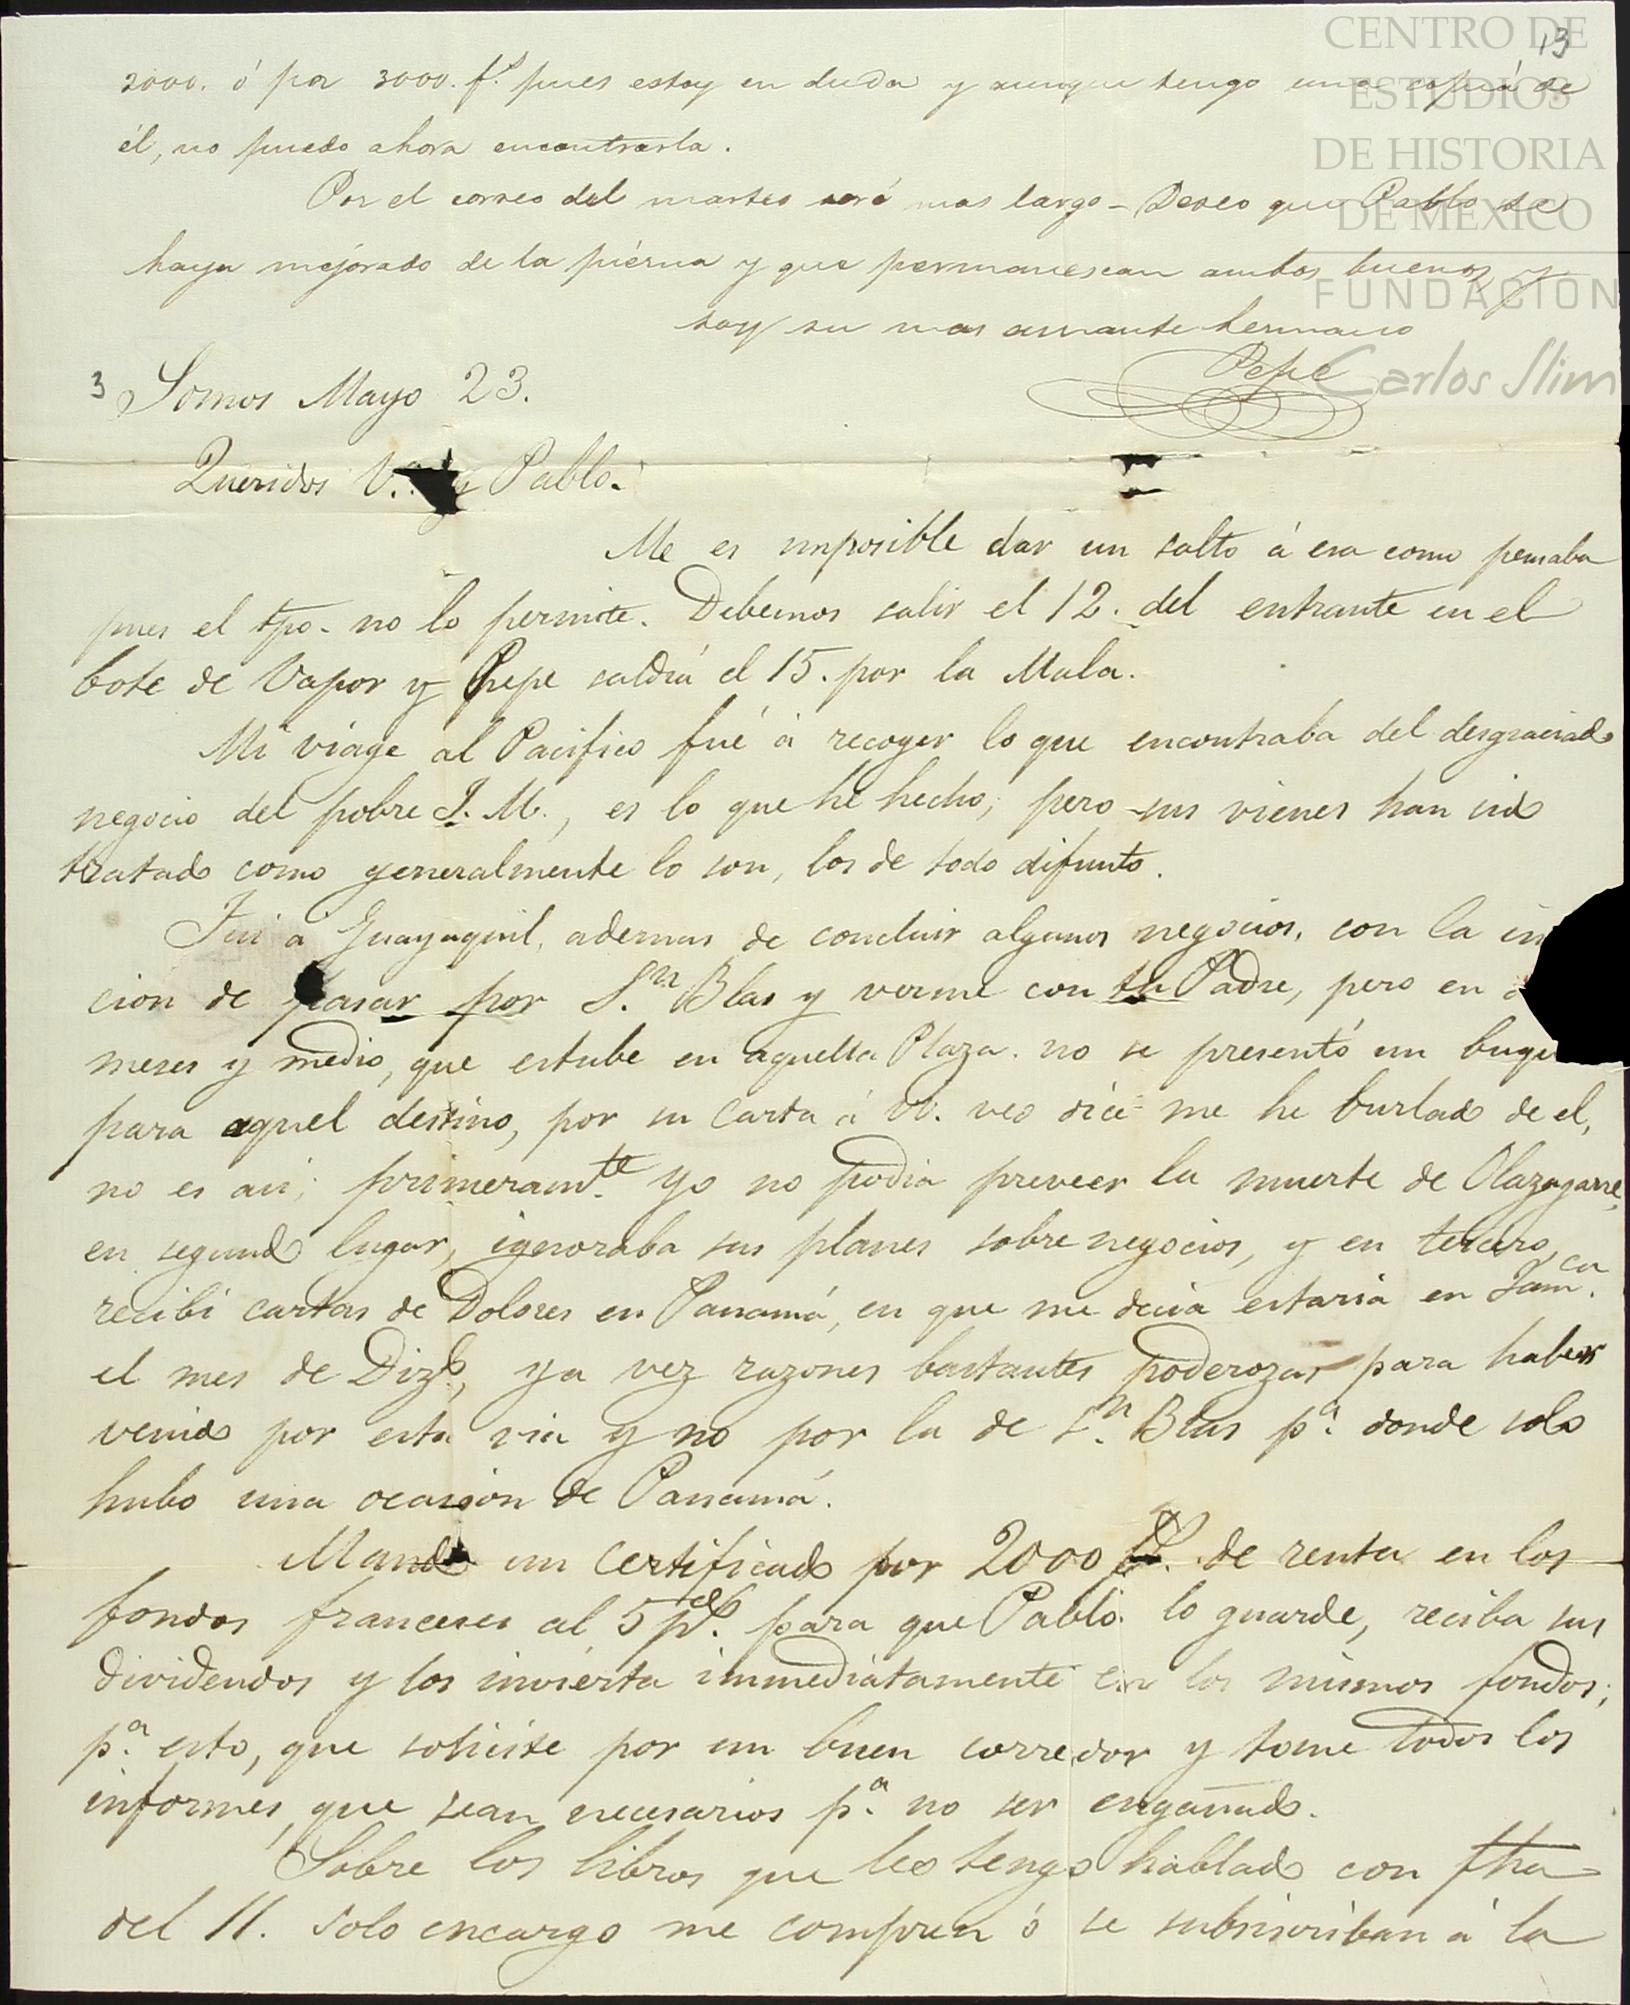 13
2000. ó por 3000. f.s pues estoy en duda y aunque tengo una copia de
él, no puedo ahora encontrarla.
Por el correo del martes seré mas largo - Deseo que Pablo se
haya mejorado de la pierna y que permanescan ambos buenos y
soy su mas amante hermano
Pepe
3 Somos Mayo 23.
Queridos V. y Pablo.
Me es imposible dar un salto á esa como pensaba
pues el tpo. no lo permite. Debemos salir el 12. del entrante en el
bote de Vapor y Pepe saldrá el 15. por la Mala.
Mi viage al Pacifico fué á recoger lo que encontraba del desgraciado
negocio del pobre J. M., es lo que hé hecho; pero sus vienes han sido
tratado como generalmente lo son, los de todo difunto.
Fui á Guayaquil, ademas de concluir algunos negocios, con la in
cion de pasar por S.n Blas y verme con tu Padre, pero en
meses y medio, que estube en aquella Plaza. no se presentó un buqu
para aquel destino, por su carta á VV. veo dice me he burlado de el,
no es asi; primeram.te yo no podia preveer la muerte de Olazagarre,
en segundo lugar, ignoraba sus planes sobre negocios, y en tercero,
recibi cartas de Dolores en Panamá, en que me decia estaria en Jam.ca
el mes de Dizb., ya vez razones bastantes poderozas para haber
venido por esta via y no por la de S.n Blas p.a donde solo
hubo una ocasion de Panamá.
Mando un certificado por 2000 f.s de renta en los
fondos franceses al 5 p.% para que Pablo lo guarde, reciba sus
dividendos y los invierta immediatamente en los mismos fondos;
p.a esto, que solicite por un buen corredor y tome todos los
informes, que sean necesarios p.a no ser engañado.
Sobre los libros que les tengo hablado con fha
del 11. solo encargo me compren ó se subscriban á la
CENTRO DE
ESTUDIOS
DE HISTORIA
DE MEXICO
FUNDACIÓN
Carlos Slim